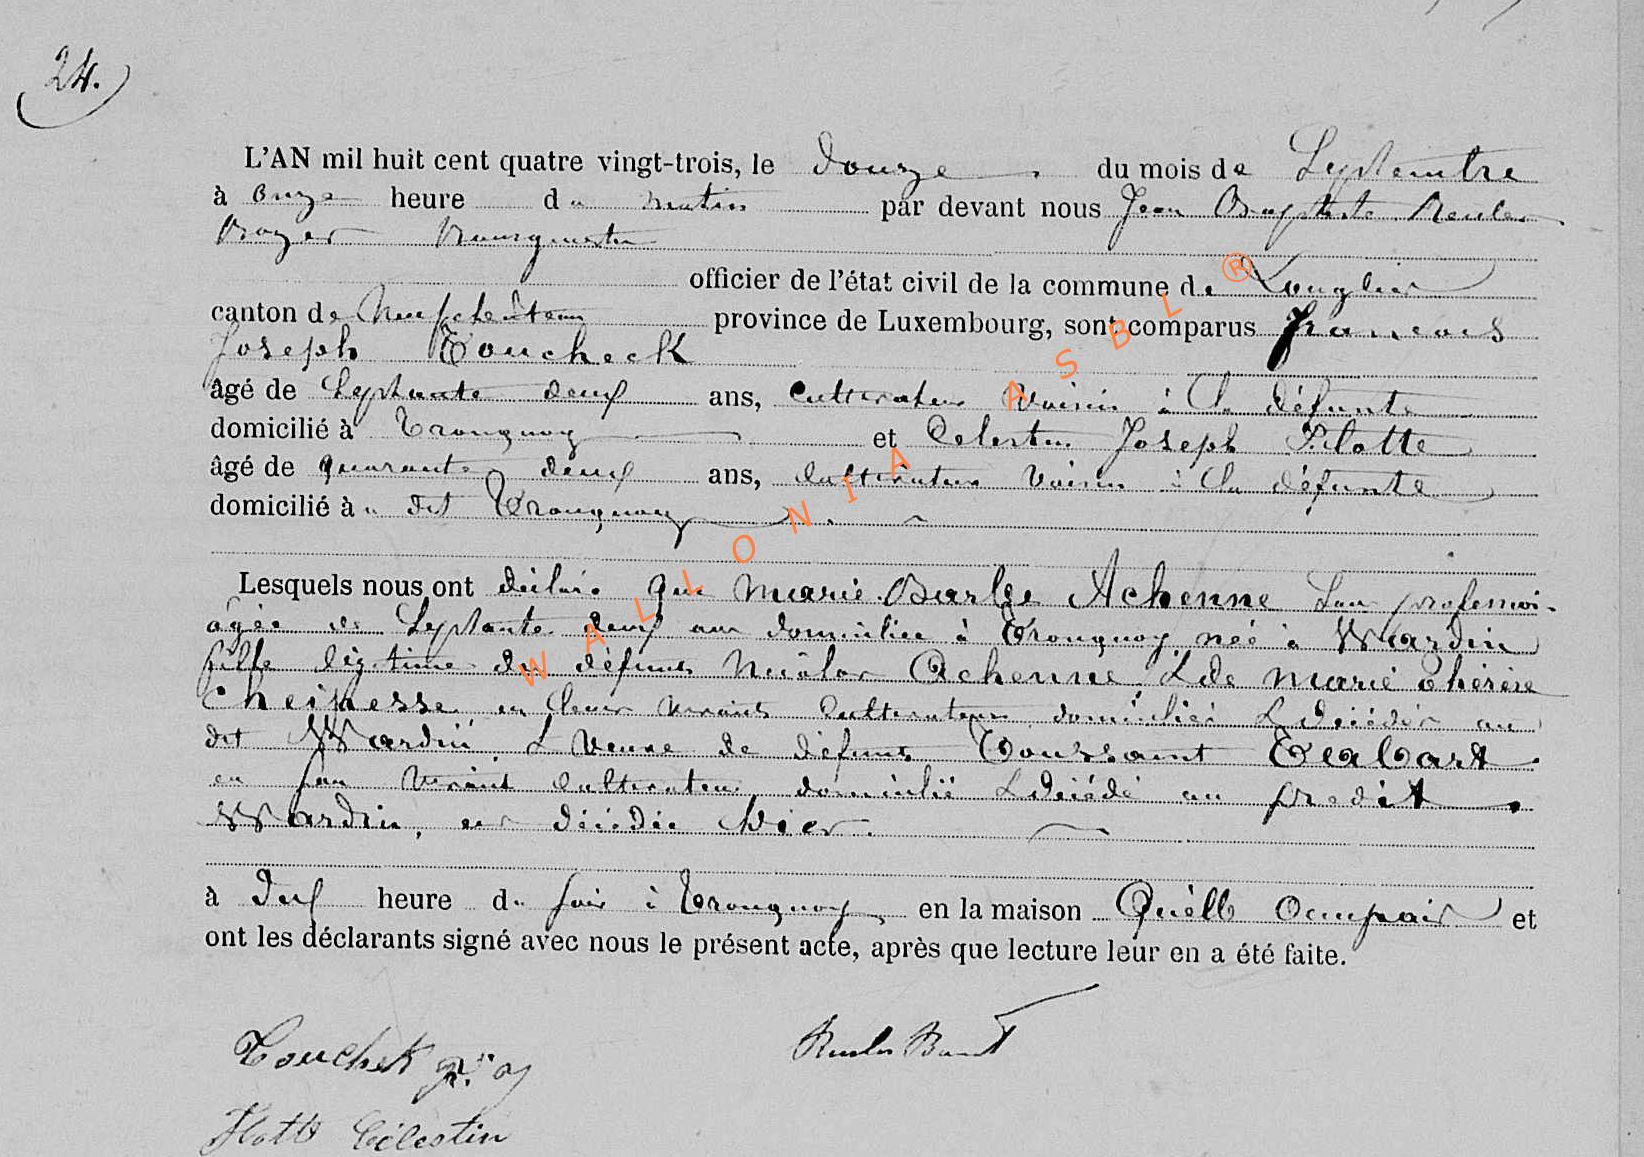 24.
L'AN mil huit cent quatre vingt-trois, le douze du mois de Septembre
à onze heure du matin par devant nous Jean Baptiste Reuler
Bozer Bourgmestre
officier de l'état civil de la commune de Longlier
canton de Neufchâteau province de Luxembourg, sont comparus François
Joseph Toucheck
âgé de Septante deux ans, Cultivateur Voisin à la défunte
domicilié à Tronquoy et Celestin Joseph Flotte
âgé de quarante deux ans, Cultivateur Voisin à la défunte
domicilié à u dit Tronquoy
Lesquels nous ont déclaré que Marie Barbe Achenne San profession
âgée de Septante deux ans domiciliée à Tronquoy, née à Wardin
fille légitime de défunts Nicolas Achenne & de Marie Thérèse
Cheipesse en leur vivant Cultivateurs domiciliés & décédés au
dit Wardin & Veuve de défunt Toussaint Teabart
en son vivant Cultivateur domicilié & décédé au predit
Wardin, est décédée hier.
à Dix heure du soir à Tronquoy en la maison Quélle Occupait et
ont les déclarants signé avec nous le présent acte, après que lecture leur en a été faite.
Touchek
Flotte Célestin
WALLONIA ASBL ®